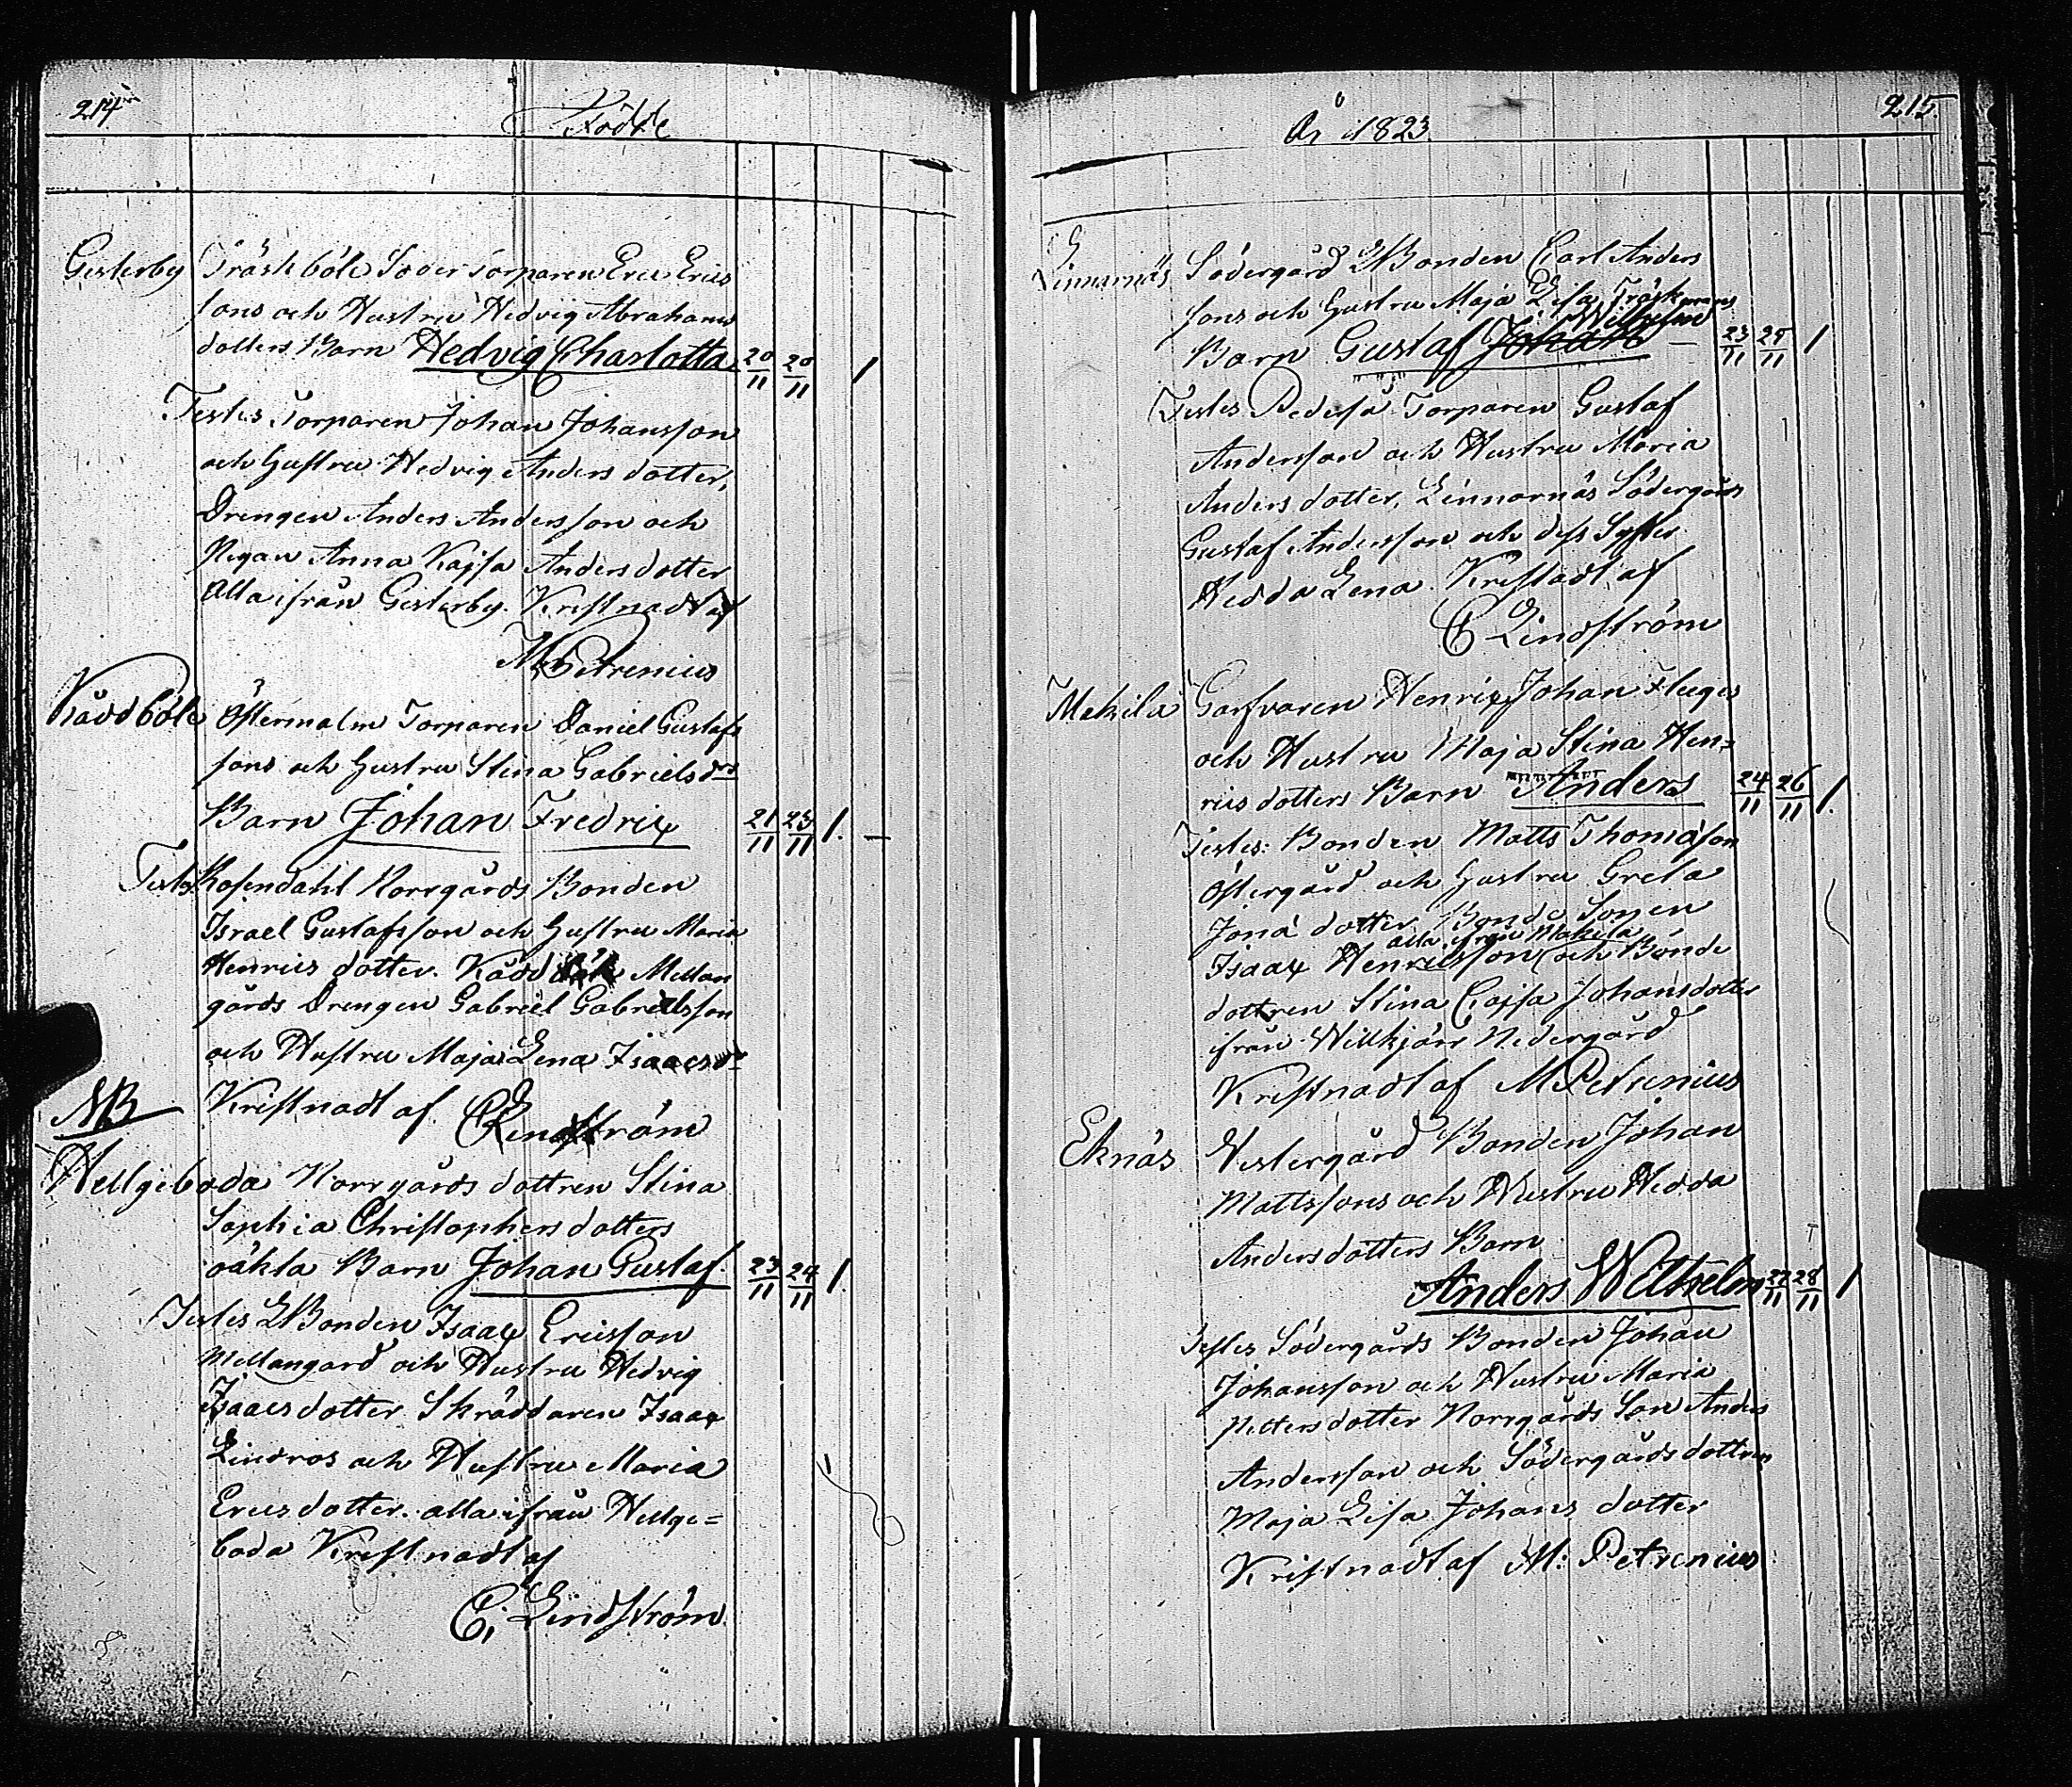 214
Födde
Gesterby Träskböle Söder Torparen Eric Erics
sons och Hustru Hedvig Abrahams
dotters Barn Hedvig Charlotta 20/11 20/11 1
Testes Torparen Johan Johansson
och Hustru Hedvig Anders dotter,
Drengen Anders Andersson och
Pigan Anna Kajsa Anders dotter
Alla ifrån Gesterby. Kristnadt af
M Petrenius
Råddböle Östermalm Torparen Daniel Gustafs
sons och Hustru Stina Gabrielsdrs
Barn Johan Fredrix 21/11 23/11 1. –
Testes Rosendahl Norrgårds Bonden
Israel Gustafsson och Hustru Maria
Henrics dotter. Mellan
gårds Drengen Gabriel Gabrielsson
och Hustru Maja Lena Isaacsdr
Kristnadt af C Lindström
NB
Hellgeboda Norrgårds dottren Stina
Sophia Christophers dotters
oäkta Barn Johan Gustaf 23/11 24/11 1.
Testes LBonden Isaax Ericsson
Mellangard och Hustru Hedvig
Isaacs dotter Skräddaren Isaax
Lindros och Hustru Maria
Erics dotter. alla ifrån Hellge=
boda Kristnadt af
C. Lindström
215.
År 1823.
Linnarnäs Södergård LBonden Carl Anders
sons och Hustru Maja Lisa
Wilhelm
Barn Gustaf Johan – 23/11 1
Testes Torparen Gustaf
Andersson och Hustru Maria
Anders dotter, Linnarnäs Södergårds
Gustaf Andersson och dess Syster
Hedda Lena. Kristnadt af
C Lindström
Makila Garfvaren Henrix Johan
och Hustru Maja Stina Hen=
rics dotters Barn Anders 24/11 26/11 1.
Testes: Bonden Matts Thomasson
Östergård och Hustru Greta
Jona dotter Bonde Sonen
alla ifrån Makila
Isaax Henricsson och Bonde
dottren Stina Cajsa Johansdotter
ifrån Willkjärr Nedergård
Kristnadt af M Petrenius
Eknäs Vestergård Bonden Johan
Mattssons och Hustru Hedda
Andersdotters Barn
Anders Wilhelm 27/11 28/11 1
Testes Södergårds Bonden Johan
Johansson och Hustru Maria
Petters dotter Norrgårds Son Anders
Andersson och Södergårds dottren
Maja Lisa Johans dotter
Kristnadt af M: Petrenius